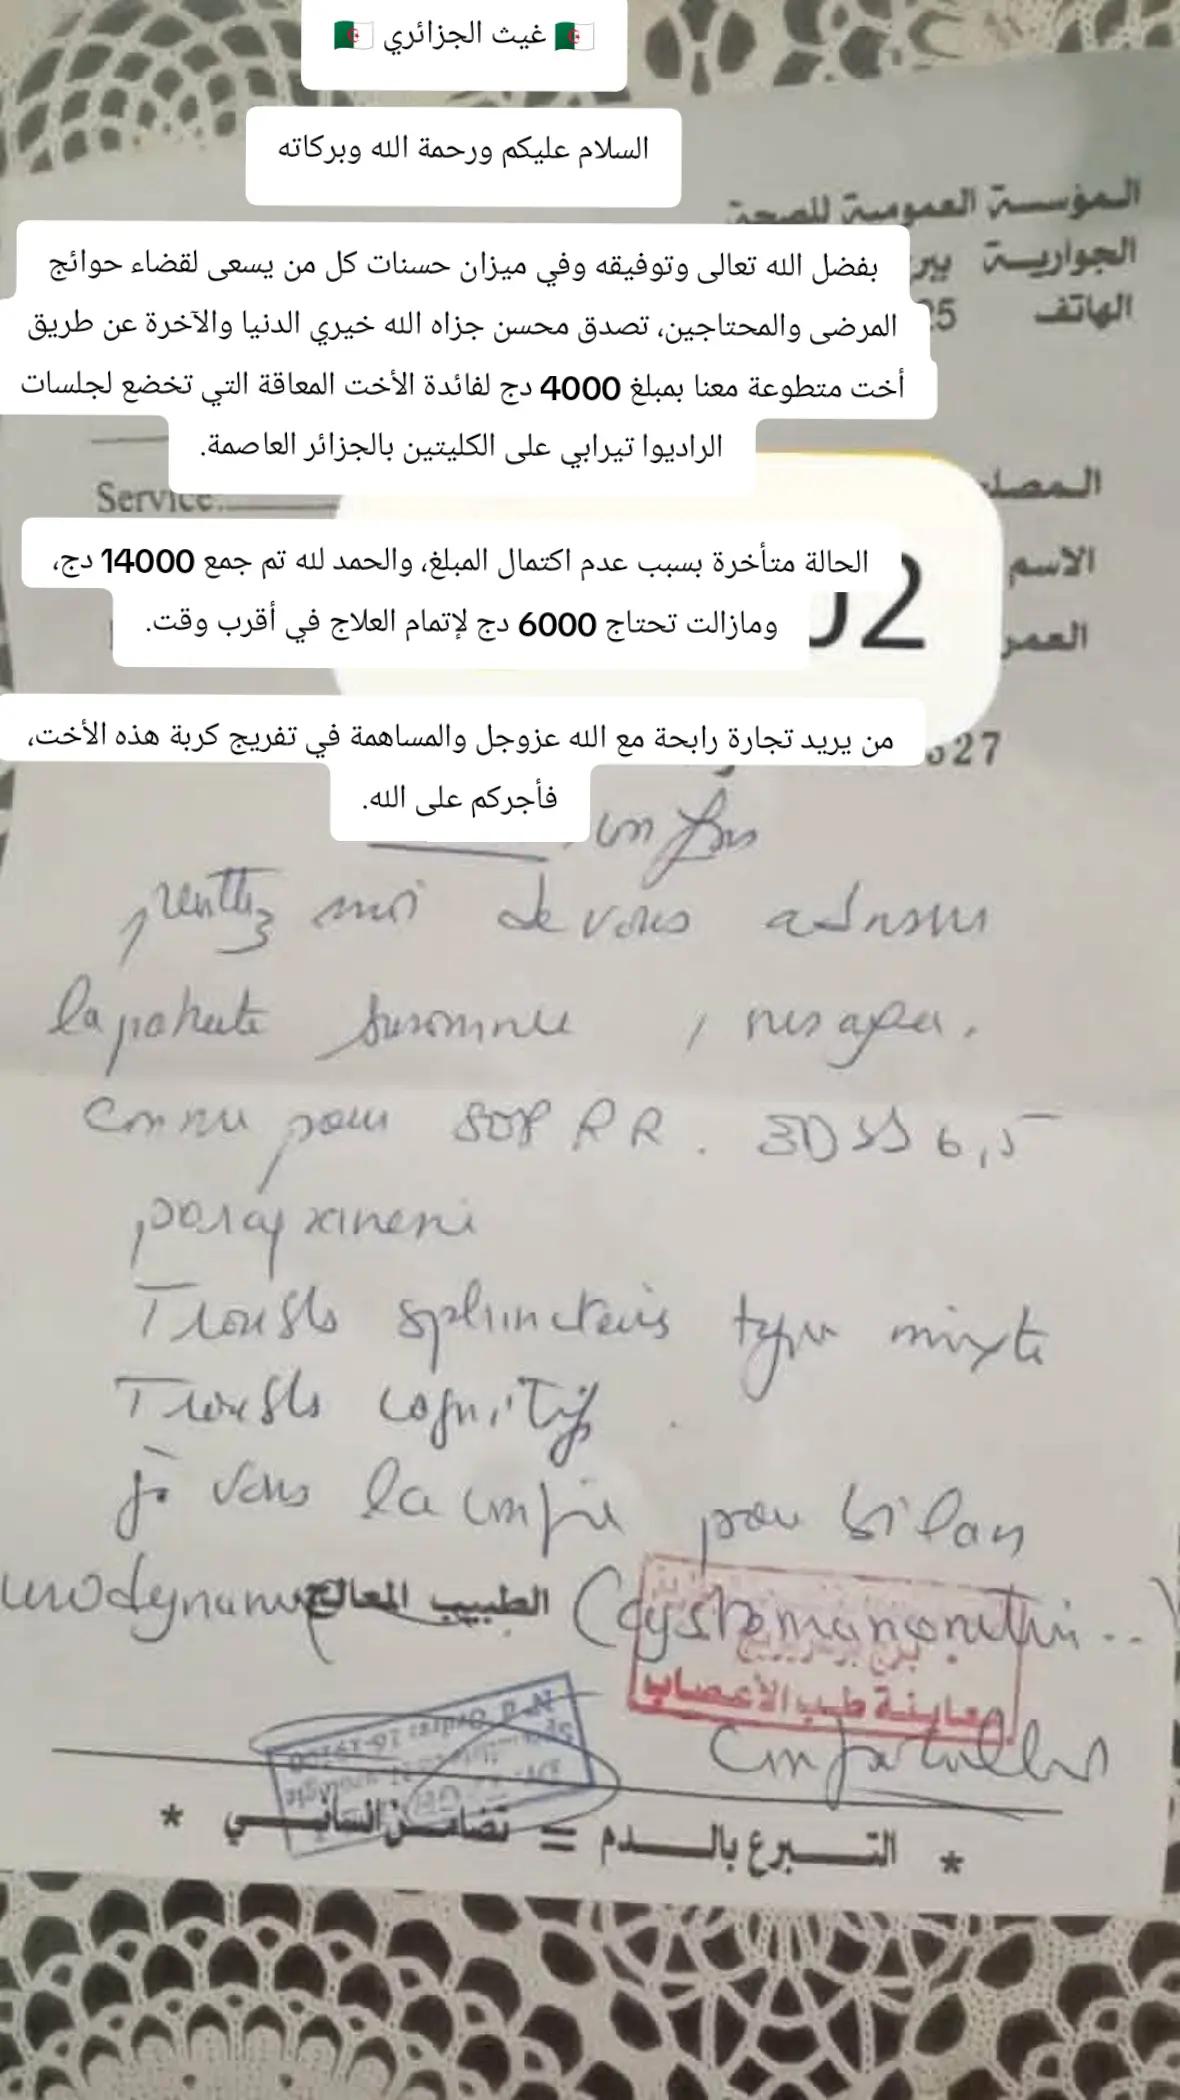 🇩🇿 غيث الجزائري 🇩🇿
السلام عليكم ورحمة الله وبركاته
المؤسسة العمومية للصحة
الجوارية ببر
الهاتف 25
بفضل الله تعالى وتوفيقه وفي ميزان حسنات كل من يسعى لقضاء حوائج
المرضى والمحتاجين، تصدق محسن جزاه الله خيري الدنيا والآخرة عن طريق
أخت متطوعة معنا بمبلغ 4000 دج لفائدة الأخت المعاقة التي تخضع لجلسات
الراديوا تيرابي على الكليتين بالجزائر العاصمة.
Service
المصلـ
الاسم
العمر
02
الحالة متأخرة بسبب عدم اكتمال المبلغ، والحمد لله تم جمع 14000 دج،
ومازالت تحتاج 6000 دج لإتمام العلاج في أقرب وقت.
من يريد تجارة رابحة مع الله عزوجل والمساهمة في تفريج كربة هذه الأخت،
فأجركم على الله.
27
moi de vous
la patiente
connu pour SEP RR. EDSS 6,5
Troubles sphinctériens type mixte
Troubles cognitifs
je vous la confie pour bilan
urodynamique (cystomanométrie...
الطبيب المعالج
معاينة طب الأعصاب
* التبرع بالدم = تضامن إنساني *